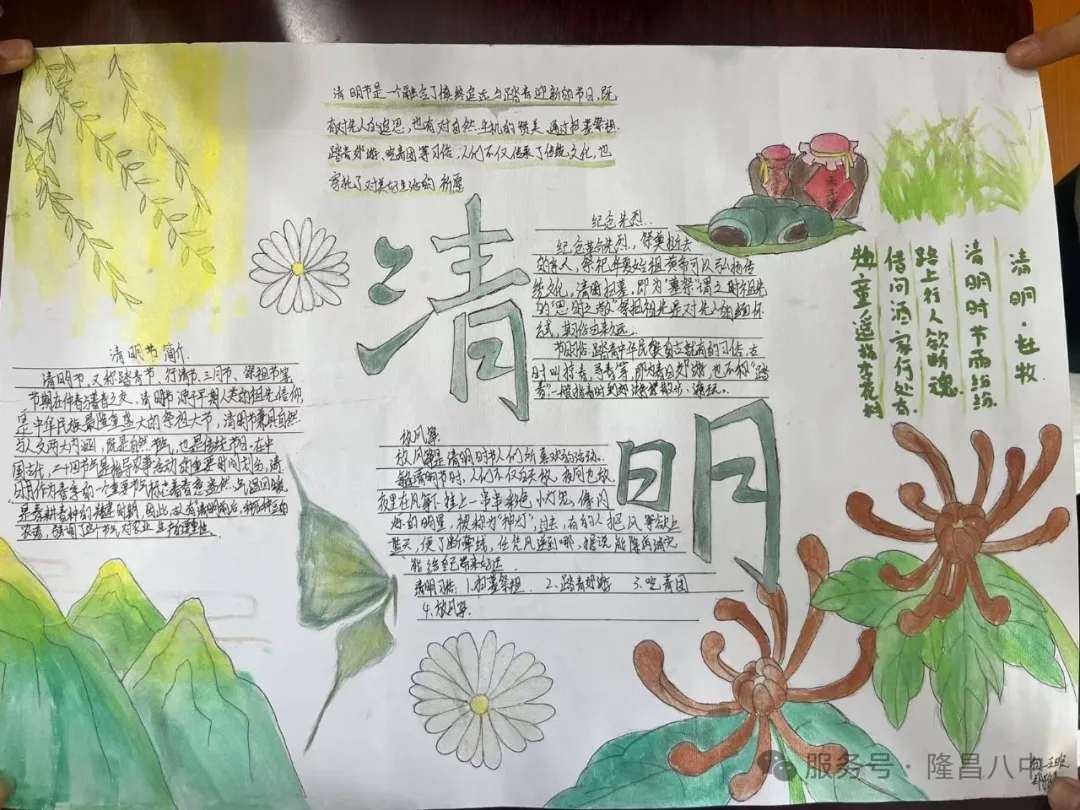 清明节是一个融合了慎终追远与踏青迎新的节日,既
有对先人的追思,也有对自然生机的赞美,通过扫墓祭祖
踏青郊游、吃青团等习俗,人们不仅传承了传统文化,也
寄托了对美好生活的祈愿
清
明
纪念先烈..
纪念革命先烈,祭奠逝去
的亲人,祭祀华夏始祖黄帝可以弘扬传
统文化,清明扫墓,即为"墓祭"谓之对祖先
的"思时之敬"祭扫祖先是对先人的缅怀
方式,其习俗由来已久
节明俗:踏青中华民族自古就有的习俗,古
时叫
清明·杜牧
清明时节雨纷纷
路上行人欲断魂
借问酒家何处有
牧童遥指杏花村
清明节简介
清明节,又称踏青节、行清节、三月节、祭祖节等
节期在仲春与暮春之交。清明节源于早期人类的祖先信仰
是中华民族最隆重盛大的祭祖大节,清明节兼具自然
与人文两大内涵,既是自然节气,也是传统节日。在中
国古代,二十四节气是指导农事活动的重要时间划分,清
明作为春季的一个重要节气标志着春意盎然,气温回暖
是春耕春种的
放风筝
放风筝是清明时节人们所喜欢的活动。
每逢清明节时,人们不仅白天放,夜间也放
夜里在风筝上挂上一串串彩色小灯笼,像闪
烁的明星,被称为"神灯",过去,有的人把风筝放上
蓝天,便剪断牵线,任凭风送到哪,据说能除病消灾
给自己带来好运
清明习俗:1.扫墓祭祖 2.踏青郊游 3.吃青团
4.放风筝
服务号·隆昌八中